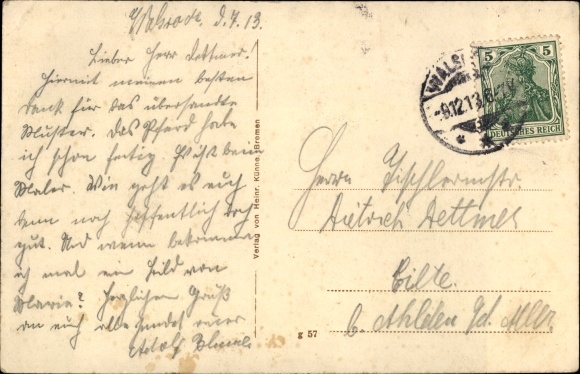 d. 7. 13.
Lieber Herr Dettmer!
Hiermit meinen besten
Dank für das übersandte
Muster. Das Pferd habe
ich schon fertig ist beim
Maler. Wie geht es euch
denn noch hoffentlich doch
gut. Und wenn bekomme
ich mal ein Bild von
Marie? Herzlichen Gruß
an euch alle sendet euer
Adolf
Verlag von Heinr. Künne, Bremen
WALS
-9.12.13.6-7.V
5 5
DEUTSCHES REICH
Herrn Tischlermstr.
Dietrich Dettmer
Eilte.
b. Ahlden a/d. Aller
g 57